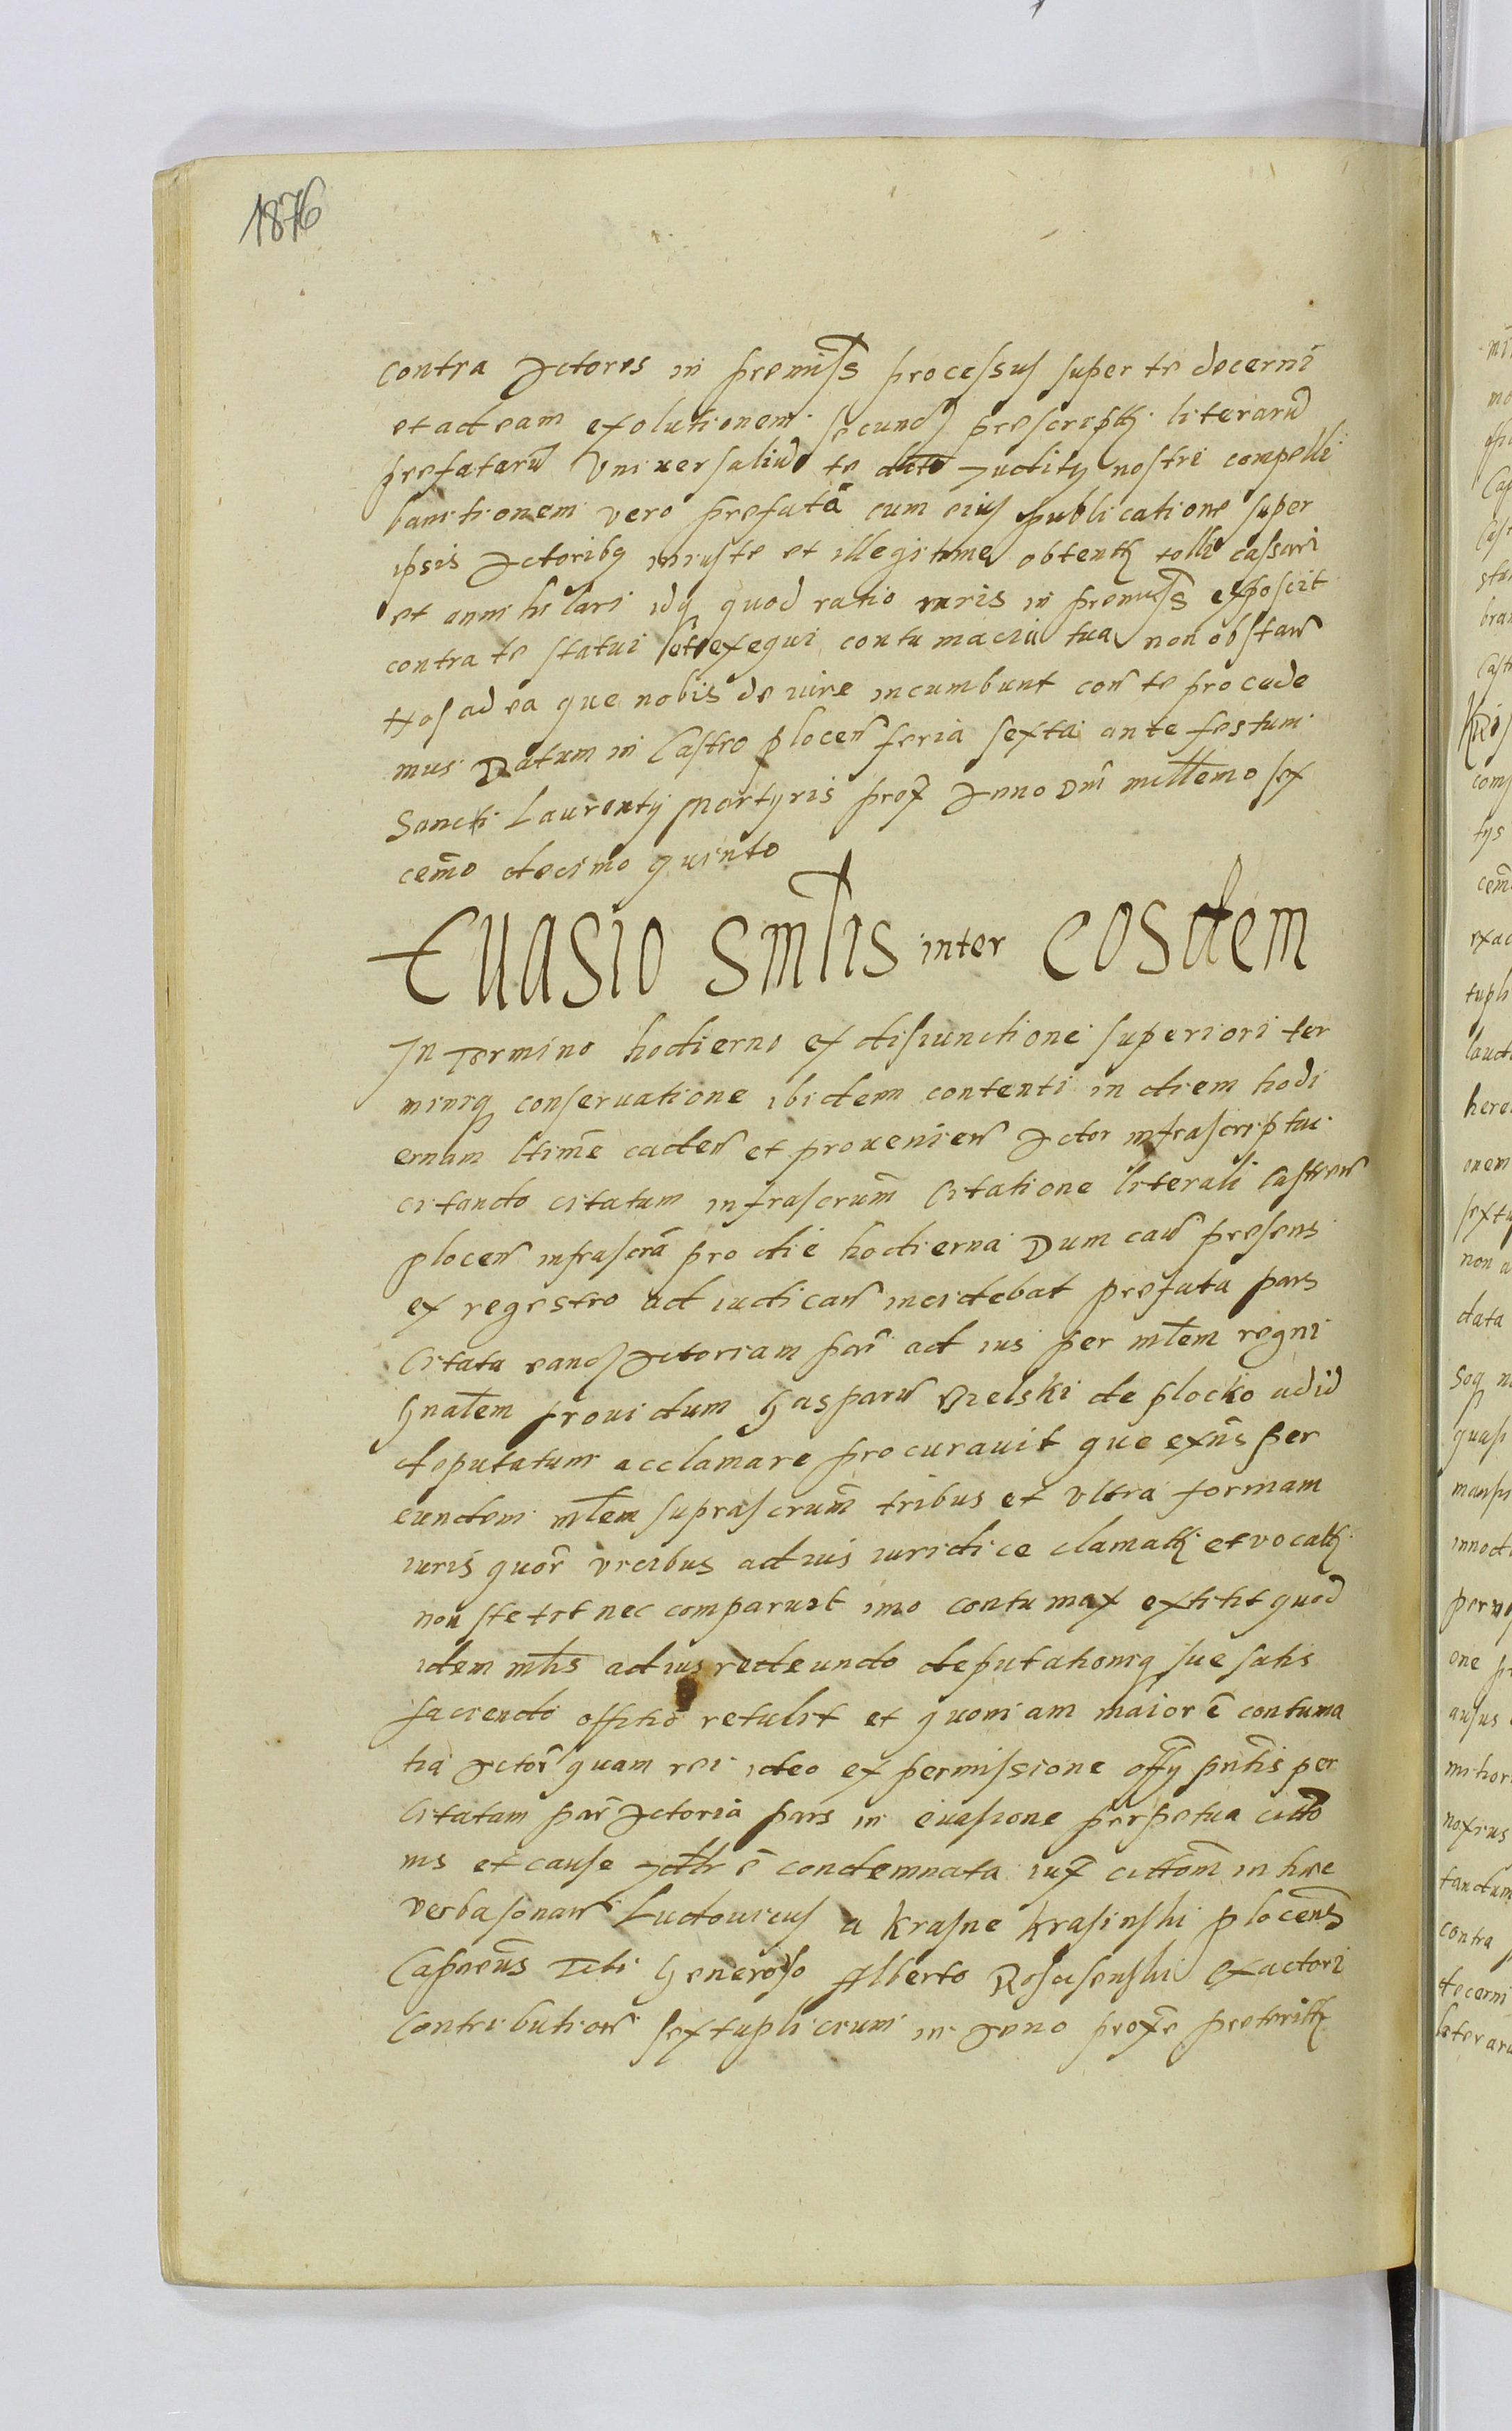 1876
contra Actores in premiss processus super te decerni
et ad eam exolutionem secund prescriptq literarū
prefatarū vniuersaliū te Juditÿ nostri compelli
banitionem vero prefatā cum eius publicatione super
ipsis Actoribq iniuste et illegitime obtentq tolli cassari
et annihilari idq quod ratio iuris in premiss exposcit
contra te statui et exequi contumacia tua non obstan̄
Hos ad ea que nobis de iure incumbunt con̄ te procede
mus Datum in Castro plocen̄ feria sexta ante festum
Sancti Laurentÿ Martyris prox Anno Dnī millemo sex
cemo decimo quinto
Euasio Smlis inter eosdem
In Termino hodierno ex disiunctione superiori ter
miniq conseruatione ibidem contenti in diem hodi
ernam ltime caden̄ et prouenien̄ Actor infrascriptus
citando citatum infrascrum̄ Citatione literali Castren̄
plocen̄ infrascrā pro die hodierna Dum cau̅ presens
ex regestro ad iudican̄ incidebat prefata pars
Citata eand Actoriam par̄ ad ius per mlem regni
Gnalem prouidum Gasparū Bielski de plocko ad id
deputatum acclamare procurauit que exn̄s per
eundem mlem suprascrum̄ tribus et vltra formam
iuris quor̄ vicibus ad ius iuridice clamatq et vocatq
non stetit nec comparuit imo contumax extitit quod
idem mlis ad ius redeundo deputationiq sue satis
faciendo offitio retulit et quoniam maior ē contuma
tia Actor̄ quam rei ideo ex permissione offÿ pn̄tis per
Citatam par̄ Actoria pars in euasione perpetua citto
nis et cause ē condemnata iux cittom̄ in hec
verba sonan̄ Ludouicus a Krasne Krasinski plocens
Capneus Tibi Generoso Alberto exactori
Contribution̄ sextuplicium in Anno proxe preteritq